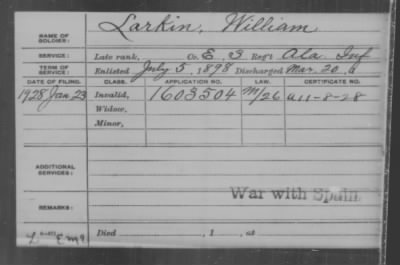 NAME OF SOLDIER: Larkin, William
SERVICE: Late rank, Co. E, 3 Reg't Ala. Inf
TERM OF SERVICE: Enlisted July 5, 1898 Discharged Mar. 20,
DATE OF FILING. CLASS. APPLICATION NO. LAW. CERTIFICATE NO.
1928 Jan 23 Invalid, 1603504 M/26 a 11-8-28
Widow,
Minor,
ADDITIONAL SERVICES:
War with Spain
REMARKS:
Died , 1 , at